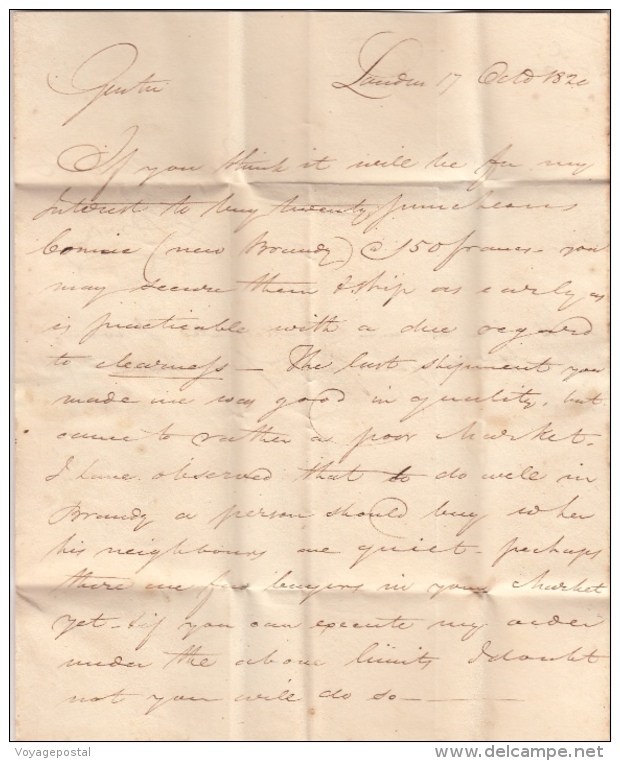 London 17 Octo 1820
Gentn
If you think it will be for my
interest to buy twenty puncheons
(new Brandy) @ 150 francs you
may secure them & ship as early as
is practicable with a due regard
to clearness – The last shipment you
made me was good in quality, but
came to rather a poor market.
I have observed that to do well in
Brandy a person should buy when
his neighbours are quiet – perhaps
there are few buyers in your Market
yet – & if you can execute my order
under the above limits I doubt
not you will do so –
Voyagepostal
delcampe.net